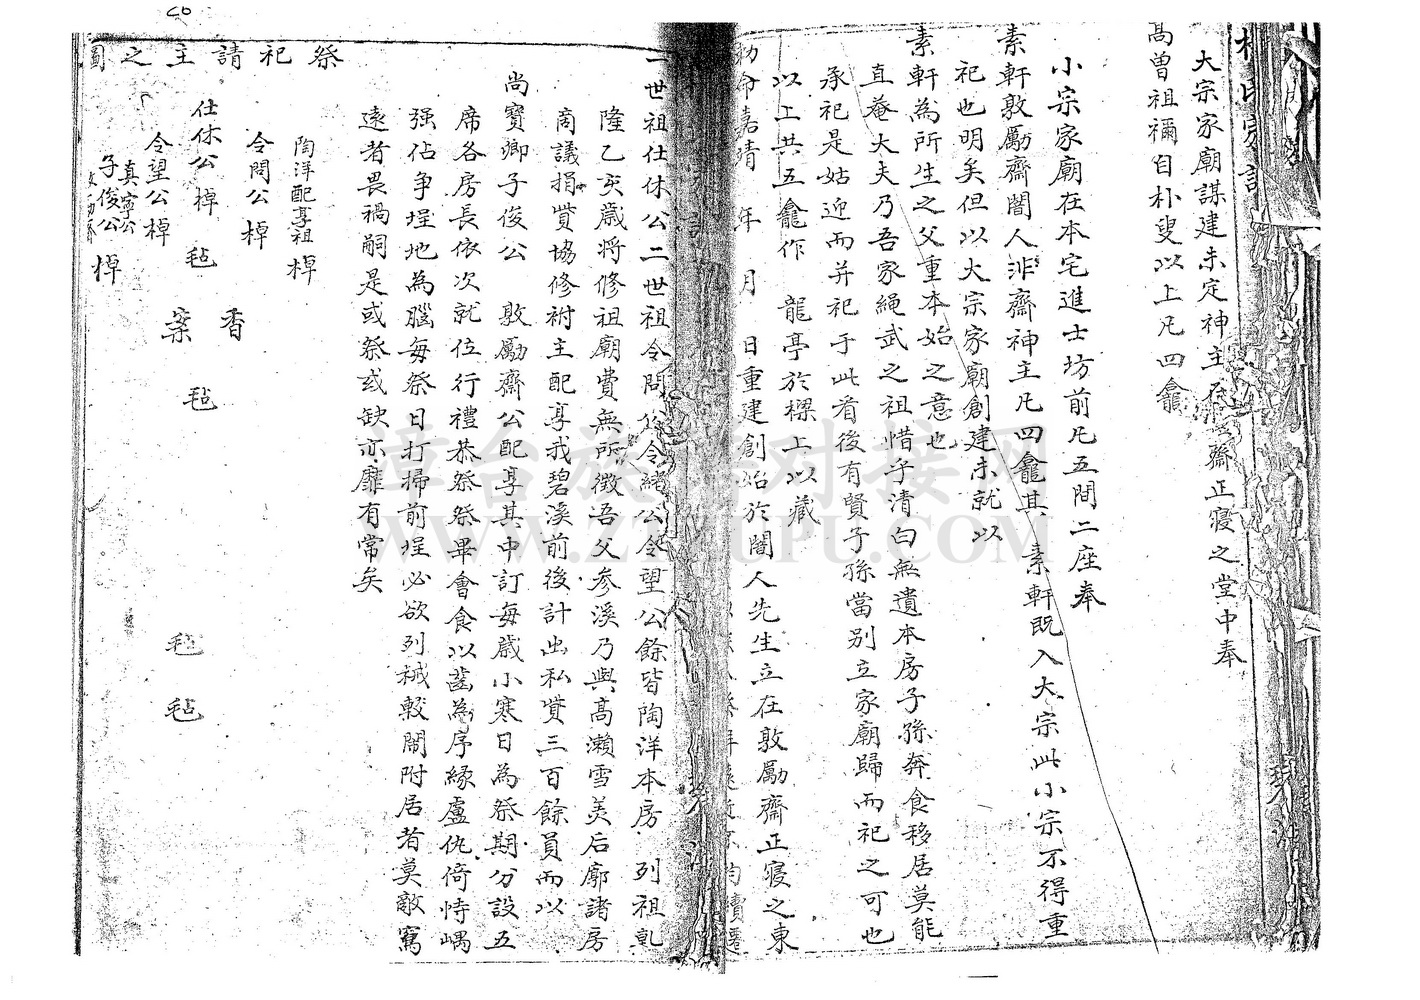 大宗家廟謀建未定神主在 齋正寢之堂中奉
高曾祖禰自朴叟以上凡四龕
小宗家廟在本宅進士坊前凡五間二座奉
素軒敦勵齋闇人洲齋神主凡四龕其 素軒既入大宗此小宗不得重
祀也明矣但以大宗家廟創建未就以
素軒為所生之父重本始之意也
直菴大夫乃吾家繩武之祖惜乎清白無遺本房子孫奔食移居莫能
承祀是姑迎而并祀于此肴後有賢子孫當別立家廟歸而祀之可也
以上共五龕作 龍亭於樑上以藏
勅命嘉靖 年 月 日重建創始於闇人先生立在敦勵齋正寢之東
二世祖仕休公二世祖令問公令緒公令望公餘皆陶洋本房 列祖乾
隆乙亥歲將修祖廟費無所徵吾父參溪乃與高瀨雪美后廓諸房
商議捐貲協修祔主配享我碧溪前後計出私貲三百餘員而以
尚寶卿子俊公 敦勵齋公配享其中訂每歲小寒日為祭期分設五
席各房長依次就位行禮恭祭祭畢會食以齒為序緣盧仇倚恃嵎
强佔爭埕地為腦每祭日打掃前埕必欲列械較鬧附居者莫敵寫
遠者畏禍嗣是或祭或缺亦靡有常矣
祭祀請主之圖
陶洋配享祖棹
令問公棹
仕休公棹 毡
令望公棹
真寧公
子俊公棹
香案
毡
毡
毡
章台族譜对接网
WWW.ZTZUPU.COM